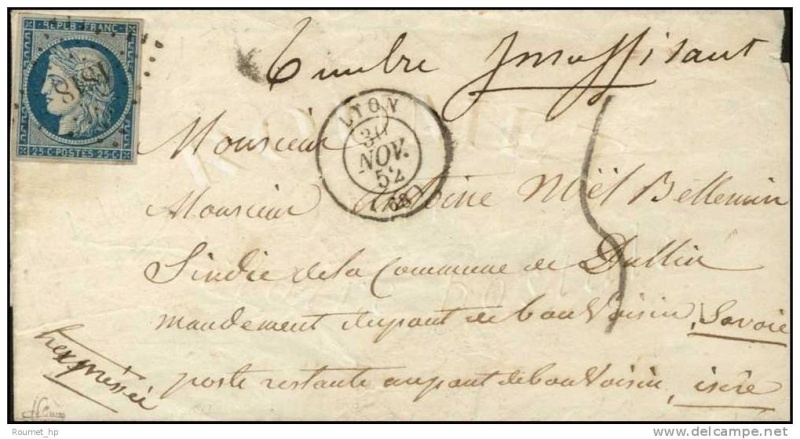 REPUB. FRANC.
1818
25 C POSTES 25 C
Timbre Insuffisant
LYON
30
NOV.
52
(68)
Monsieur
Monsieur Antoine Noël Bellemin
Sindic de la Commune de Dullin
mandement du pont de bonVoisin, Savoie
poste restante au pont de bonVoisin, isère
tres pressée
© Roumet_hp
www.delcampe.net